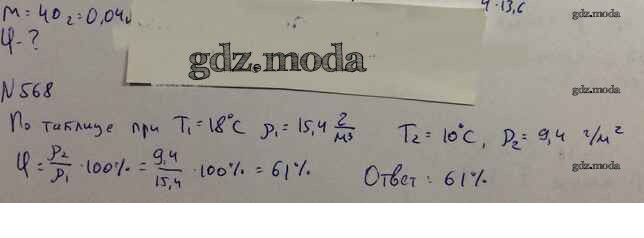 m = 40 г = 0,04
4·13,6
gdz.moda
φ - ?
gdz.moda
№568
gdz.moda
По таблице при T₁ = 18°C ρ₁ = 15,4 г/м³ T₂ = 10°C, ρ₂ = 9,4 г/м²
φ = ρ₂/ρ₁ · 100% = 9,4/15,4 · 100% = 61% Ответ: 61%
gdz.moda
gdz.moda